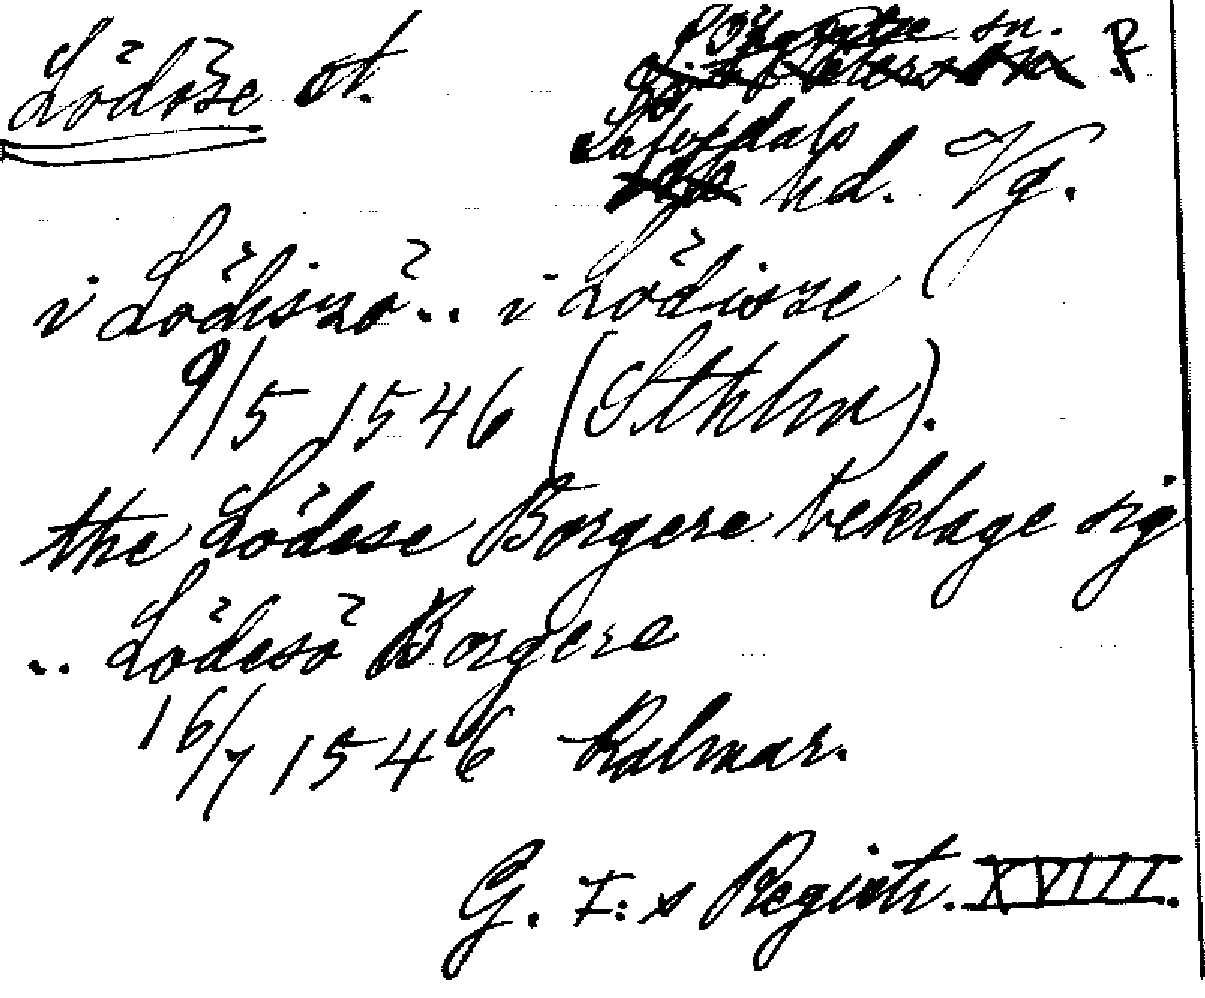 Lödöse st. sn. P
Säfvedals
hd. Vg.
i Lödiszö.. i Lödisze
9/5 1546 (Sthlm).
the Lödese Borgere beklage sig
.. Lödesö Borgere
16/7 1546 Kalmar.
G. I:s Registr. XVIII.